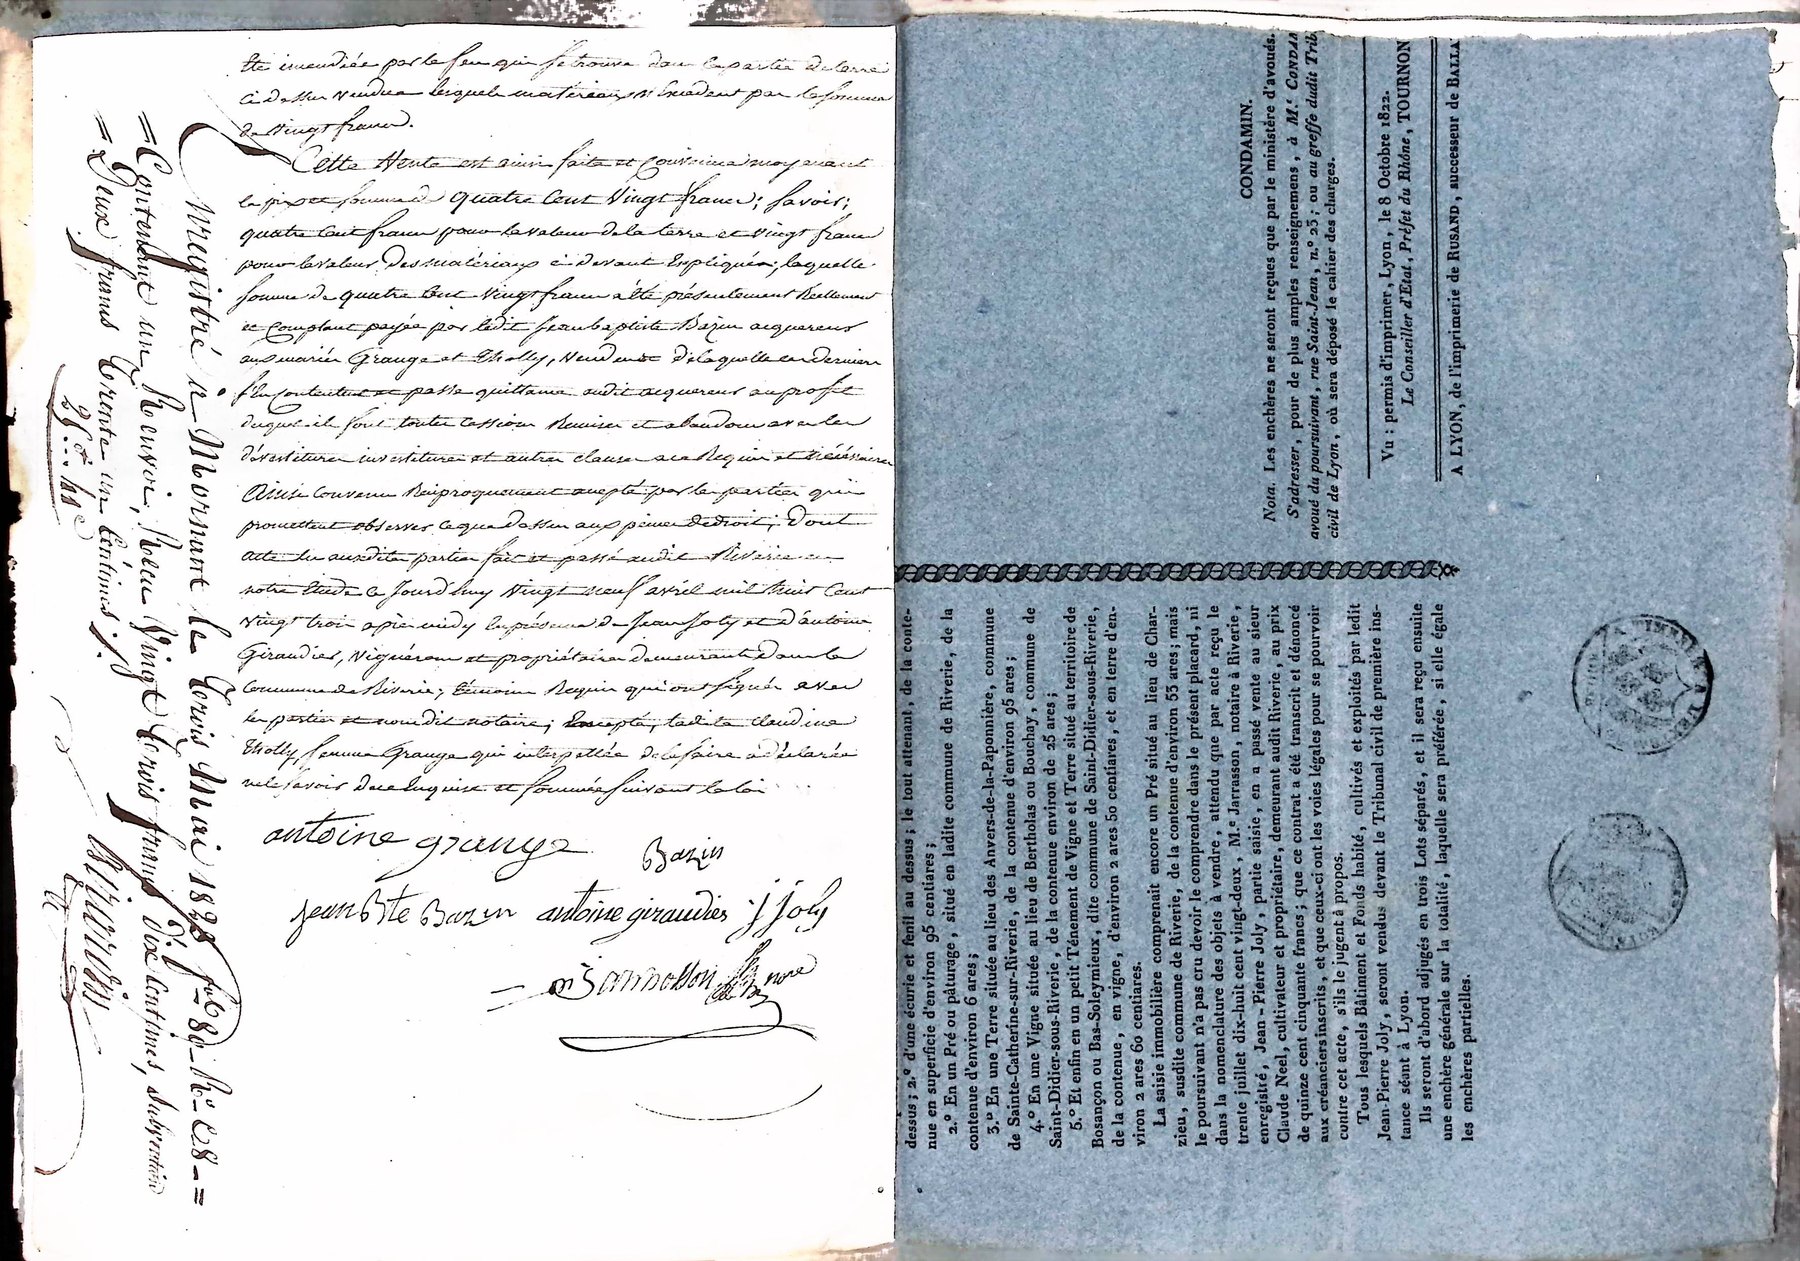 été incendiée par le feu qui se trouve dans la partie de terre
ci dessus vendue lesquels matériaux n'excèdent pas la somme
de vingt francs.
Cette vente est ainsi faite et convenue moyenant
le prix et somme de quatre cent vingt francs; savoir;
quatre cent francs pour la valeur de la terre et vingt francs
pour la valeur des matériaux ci devant expliqués; laquelle
somme de quatre cent vingt francs a été présentement réellement
et comptant payée par ledit Jean baptiste Bazin acquereur
aux mariés Grange et Tholly, vendeurs de laquelle ces derniers
s'en contentent et passe quittance audit acquereur au profit
duquel il font toutes cession remises et abandons avec les
dévestitures investitures et autres clauses a ce requises et nécéssaires
Ainsi convenu réciproquement accepté par les parties qui
promettent observer ce que dessus aux peines de droit; Dont
acte lu auxdites parties fait et passé audit Riverie en
notre étude ce Jourd'huy vingt neuf avril mil huit cent
vingt trois après midy en présence de Jean Joly et d'antoine
Giraudier, vigneron et propriétaires demeurants dans la
commune de Riverie; témoins requis qui ont signés avec
les parties et nous dit notaire; Excepté, ladite claudine
Tholly, femme Grange qui interpellée de le faire a déclarée
ne le savoir de ce enquise et sommée suivant la loi
antoine grange
Bazin
jean Bte Bazin antoine giraudier j joly
Enregistré à Mornant le trois Mai 1823 f° 80 R° C8
Contenant un Renvoi, Reçu Vingt trois francs dix centimes, subvention
Deux francs trente un Centimes
25f..41c
CONDAMIN.
Nota. Les enchères ne seront reçues que par le ministère d'avoués.
S'adresser, pour de plus amples renseignemens, à M.e CONDA
avoué du poursuivant, rue Saint-Jean, n.o 25; ou au greffe dudit Trib
civil de Lyon, où sera déposé le cahier des charges.
Vu : permis d'imprimer, Lyon, le 8 Octobre 1822.
Le Conseiller d'État, Préfet du Rhône, TOURNON
A LYON, de l'imprimerie de RUSAND, successeur de BALLA
dessus; 2.o d'une écurie et fenil au dessus; le tout attenant, de la conte-
nue en superficie d'environ 95 centiares;
2.o En un Pré ou pâturage, situé en ladite commune de Riverie, de la
contenue d'environ 6 ares;
3.o En une Terre située au lieu des Anvers-de-la-Paponnière, commune
de Sainte-Catherine-sur-Riverie, de la contenue d'environ 95 ares;
4.o En une Vigne située au lieu de Bertholas ou Bouchay, commune de
Saint-Didier-sous-Riverie, de la contenue environ de 25 ares;
5.o Et enfin en un petit Ténement de Vigne et Terre situé au territoire de
Bosançon ou Bas-Soleymieux, dite commune de Saint-Didier-sous-Riverie,
de la contenue, en vigne, d'environ 2 ares 50 centiares, et en terre d'en-
viron 2 ares 60 centiares.
La saisie immobilière comprenait encore un Pré situé au lieu de Char-
zieu, susdite commune de Riverie, de la contenue d'environ 55 ares; mais
le poursuivant n'a pas cru devoir le comprendre dans le présent placard, ni
dans la nomenclature des objets à vendre, attendu que par acte reçu le
trente juillet dix-huit cent vingt-deux, M.e Jarrasson, notaire à Riverie,
enregistré, Jean-Pierre Joly, partie saisie, en a passé vente au sieur
Claude Neel, cultivateur et propriétaire, demeurant audit Riverie, au prix
de quinze cent cinquante francs; que ce contrat a été transcrit et dénoncé
aux créanciers inscrits, et que ceux-ci ont les voies légales pour se pourvoir
contre cet acte, s'ils le jugent à propos.
Tous lesquels Bâtiment et Fonds habité, cultivés et exploités par ledit
Jean-Pierre Joly, seront vendus devant le Tribunal civil de première ins-
tance séant à Lyon.
Ils seront d'abord adjugés en trois Lots séparés, et il sera reçu ensuite
une enchère générale sur la totalité, laquelle sera préférée, si elle égale
les enchères partielles.